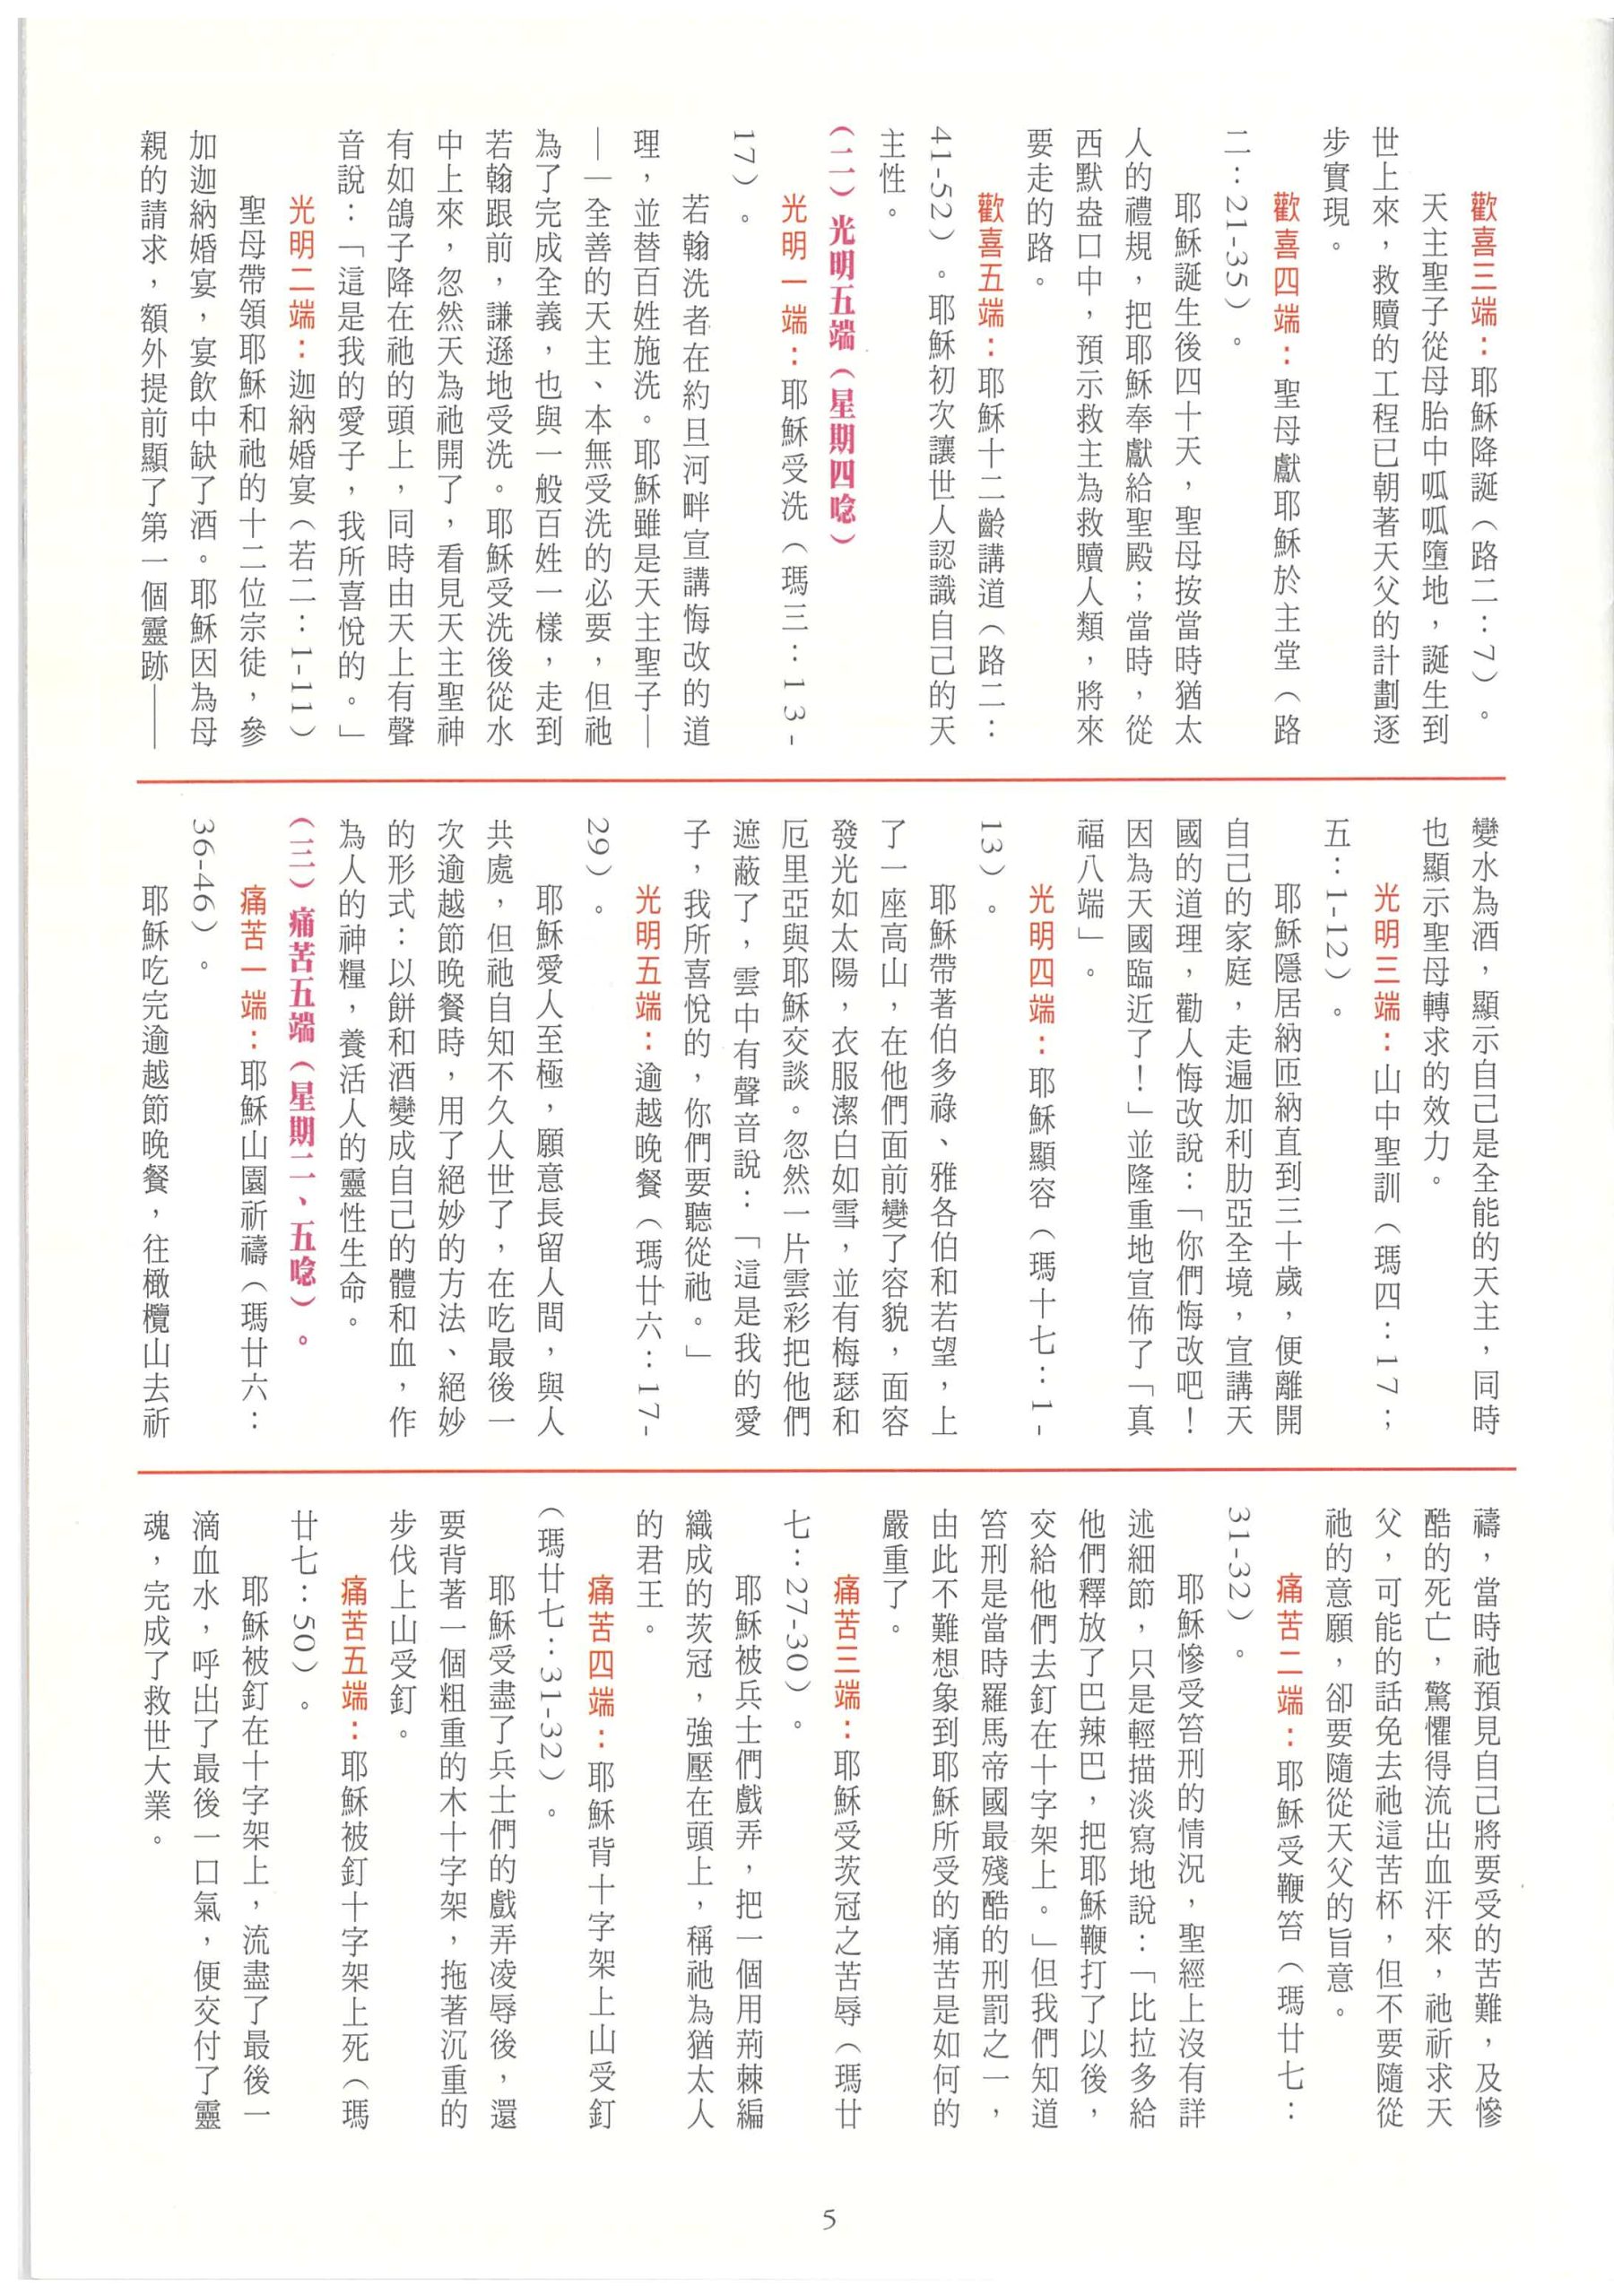 歡喜三端：耶穌降誕（路二：7）。
天主聖子從母胎中呱呱墮地，誕生到
世上來，救贖的工程已朝著天父的計劃逐
步實現。
歡喜四端：聖母獻耶穌於主堂（路
二：21-35）。
耶穌誕生後四十天，聖母按當時猶太
人的禮規，把耶穌奉獻給聖殿；當時，從
西默盎口中，預示救主為救贖人類，將來
要走的路。
歡喜五端：耶穌十二齡講道（路二：
41-52）。耶穌初次讓世人認識自己的天
主性。
（二）光明五端（星期四唸）
光明一端：耶穌受洗（瑪三：13-
17）。
若翰洗者在約旦河畔宣講悔改的道
理，並替百姓施洗。耶穌雖是天主聖子—
—全善的天主、本無受洗的必要，但祂
為了完成全義，也與一般百姓一樣，走到
若翰跟前，謙遜地受洗。耶穌受洗後從水
中上來，忽然天為祂開了，看見天主聖神
有如鴿子降在祂的頭上，同時由天上有聲
音說：「這是我的愛子，我所喜悅的。」
光明二端：迦納婚宴（若二：1-11）
聖母帶領耶穌和祂的十二位宗徒，參
加迦納婚宴，宴飲中缺了酒。耶穌因為母
親的請求，額外提前顯了第一個靈跡——
變水為酒，顯示自己是全能的天主，同時
也顯示聖母轉求的效力。
光明三端：山中聖訓（瑪四：17；
五：1-12）。
耶穌隱居納匝納直到三十歲，便離開
自己的家庭，走遍加利肋亞全境，宣講天
國的道理，勸人悔改說：「你們悔改吧！
因為天國臨近了！」並隆重地宣佈了「真
福八端」。
光明四端：耶穌顯容（瑪十七：1-
13）。
耶穌帶著伯多祿、雅各伯和若望，上
了一座高山，在他們面前變了容貌，面容
發光如太陽，衣服潔白如雪，並有梅瑟和
厄里亞與耶穌交談。忽然一片雲彩把他們
遮蔽了，雲中有聲音說：「這是我的愛
子，我所喜悅的，你們要聽從祂。」
光明五端：逾越晚餐（瑪廿六：17-
29）。
耶穌愛人至極，願意長留人間，與人
共處，但祂自知不久人世了，在吃最後一
次逾越節晚餐時，用了絕妙的方法、絕妙
的形式：以餅和酒變成自己的體和血，作
為人的神糧，養活人的靈性生命。
（三）痛苦五端（星期二、五唸）。
痛苦一端：耶穌山園祈禱（瑪廿六：
36-46）。
耶穌吃完逾越節晚餐，往橄欖山去祈
禱，當時祂預見自己將要受的苦難，及慘
酷的死亡，驚懼得流出血汗來，祂祈求天
父，可能的話免去祂這苦杯，但不要隨從
祂的意願，卻要隨從天父的旨意。
痛苦二端：耶穌受鞭笞（瑪廿七：
31-32）。
耶穌慘受笞刑的情況，聖經上沒有詳
述細節，只是輕描淡寫地說：「比拉多給
他們釋放了巴辣巴，把耶穌鞭打了以後，
交給他們去釘在十字架上。」但我們知道
笞刑是當時羅馬帝國最殘酷的刑罰之一，
由此不難想象到耶穌所受的痛苦是如何的
嚴重了。
痛苦三端：耶穌受茨冠之苦辱（瑪廿
七：27-30）。
耶穌被兵士們戲弄，把一個用荊棘編
織成的茨冠，強壓在頭上，稱祂為猶太人
的君王。
痛苦四端：耶穌背十字架上山受釘
（瑪廿七：31-32）。
耶穌受盡了兵士們的戲弄凌辱後，還
要背著一個粗重的木十字架，拖著沉重的
步伐上山受釘。
痛苦五端：耶穌被釘十字架上死（瑪
廿七：50）。
耶穌被釘在十字架上，流盡了最後一
滴血水，呼出了最後一口氣，便交付了靈
魂，完成了救世大業。
5